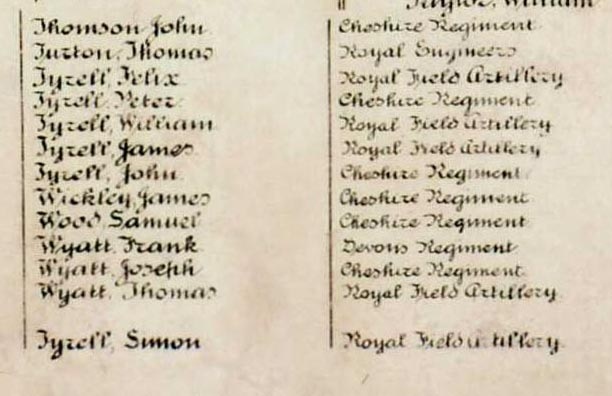 Taylor, William
Thomson John Cheshire Regiment
Turton, Thomas Royal Engineers
Tyrell, Felix Royal Field Artillery
Tyrell, Peter Cheshire Regiment
Tyrell, William Royal Field Artillery
Tyrell, James Royal Field Artillery
Tyrell, John Cheshire Regiment
Wickley, James Cheshire Regiment
Wood, Samuel Cheshire Regiment
Wyatt, Frank Devons Regiment
Wyatt, Joseph Cheshire Regiment
Wyatt, Thomas Royal Field Artillery
Tyrell, Simon Royal Field Artillery